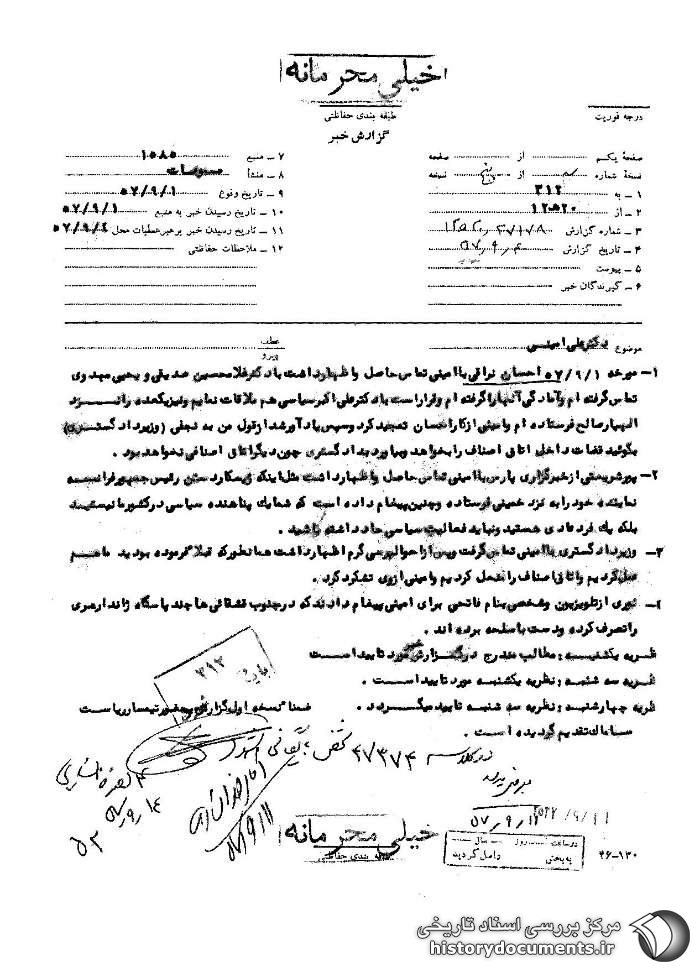 خیلی محرمانه
طبقه بندی حفاظتی
گزارش خبر
درجه فوریت
صفحه یکم از صفحه
نسخه شماره سه از پنج نسخه
۱ ـ به ۳۱۲
۲ ـ از ۱۲ﻫ۲۰
۳ ـ شماره گزارش
۴ ـ تاریخ گزارش
۵ ـ پیوست
۶ ـ گیرندگان خبر
۷ ـ منبع ۱۵۸۵
۸ ـ منشأ مسموعات
۹ ـ تاریخ وقوع ۵۷/۹/۱
۱۰ ـ تاریخ رسیدن خبر به منبع ۵۷/۹/۱
۱۱ ـ تاریخ رسیدن خبر برهبرعملیات محل ۵۷/۹/۴
۱۲ ـ ملاحظات حفاظتی
موضوع دکترعلی امینی
عطف
پیرو
۱ـ مورخه ۵۷/۹/۱ احسان نراقی باامینی تماس حاصل واظهارداشت بادکترغلامحسین صدیقی و یحیی مهدوی
تماس گرفته ام وآمادگی آنهاراگرفته ام وقراراست بادکترعلی اکبرسیاسی هم ملاقات نمایم ونیزیکعده رانزد
الهیارصالح فرستاده ام وامینی ازکاراحسان تمجید کرد وسپس یادآورشدازقول من به نجفی (وزیردادگستری)
بگوئید قضات داخل اتاق اصناف رابخواهد وبیاورد بدادگستری چون دیگراتاق اصنافی نخواهد بود .
۲ـ پورشریعتی ازخبرگزاری پارس باامینی تماس حاصل واظهارداشت مثل اینکه ژیسکاردستن رئیس جمهورفرانسه
نماینده خود را به نزد خمینی فرستاده وچنین پیغام داده است که شما یک پناهنده سیاسی درکشورمانیستید
بلکه یک فرد عادی هستید ونباید فعالیت سیاسی حاد داشته باشید .
۳ـ وزیردادگستری باامینی تماس گرفت وپس ازاحوالپرسی گرم اظهارداشت همانطورکه قبلا فرموده بودید ماهم
عمل کردیم واتاق اصناف رامنحل کردیم وامینی ازوی تشکرکرد .
۴ـ نوری ازتلویزیون وشخصی بنام فاتحی برای امینی پیغام دادند که درجنوب قشقائی ها چند پاسگاه ژاندارمری
راتصرف کرده ودست باسلحه برده اند .
نظریه یکشنبه : مطالب مندرج درگزارش مورد تاییداست
نظریه سه شنبه : نظریه یکشنبه مورد تاییداست .
نظریه چهارشنبه : نظریه سه شنبه تاییدمیگردد . ضمنا نسخه اول گزارش بحضورتیمسارریاست
ساماندتقدیم گردیده است .
۳۱۲
۴۷۳۷۴
۵۷/۹/۱۱
خیلی محرمانه
طبقه بندی حفاظتی
درساعت روز سال
به بخش واصل گردید
۳۶-۱۳۰
مرکز بررسی اسناد تاریخی
historydocuments.ir